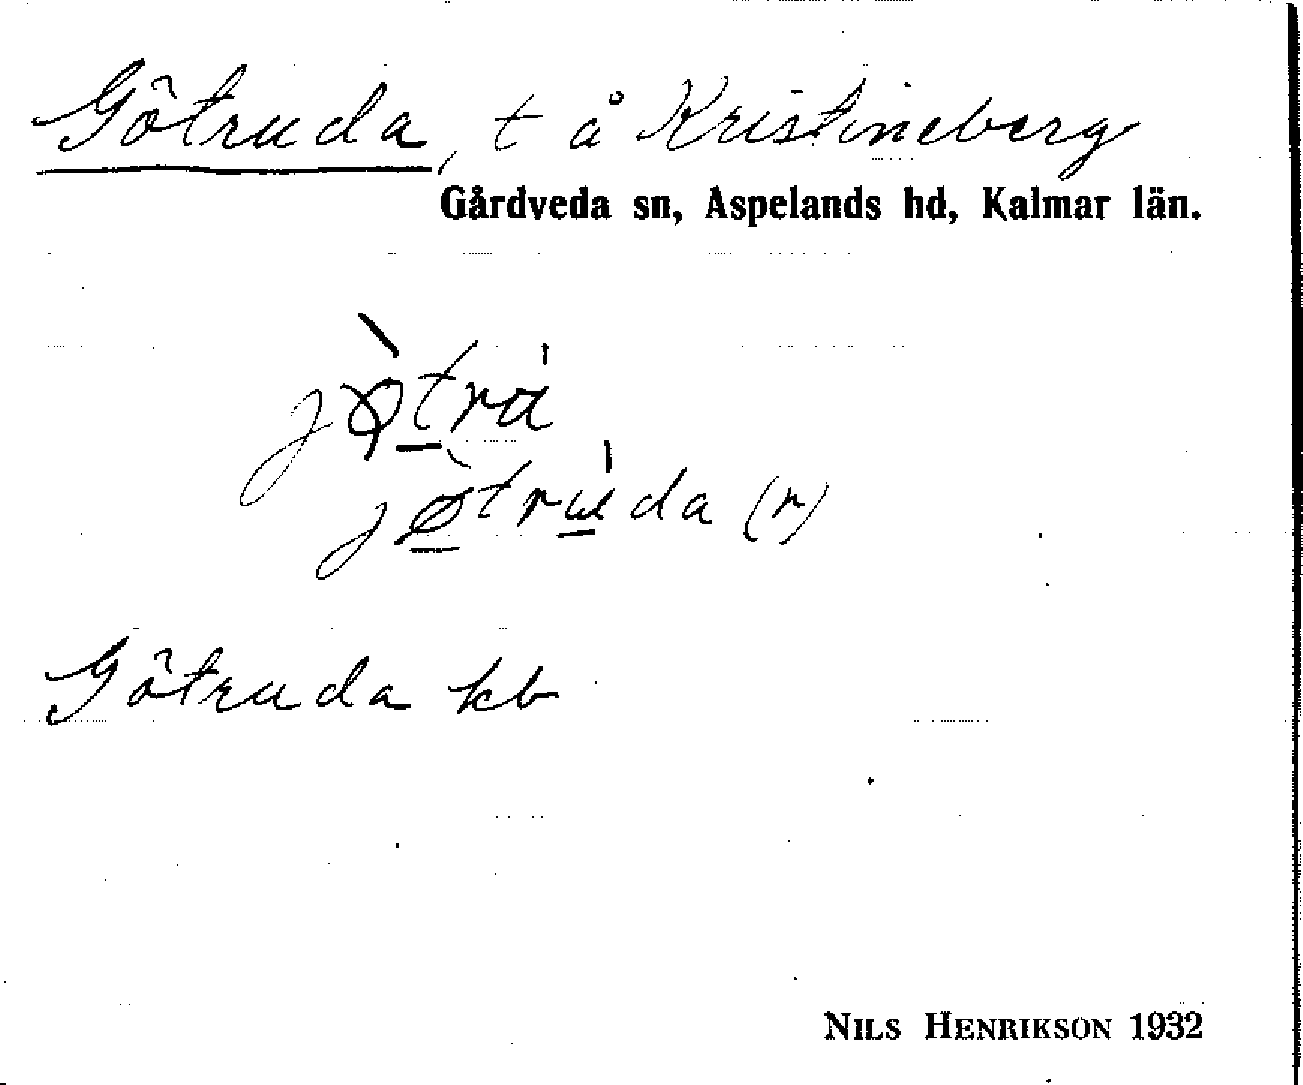 Götruda, t å Kristineberg
Gårdveda sn, Aspelands hd, Kalmar län.
jø̀tra
jøtruda (r)
Götruda kb
NILS HENRIKSON 1932